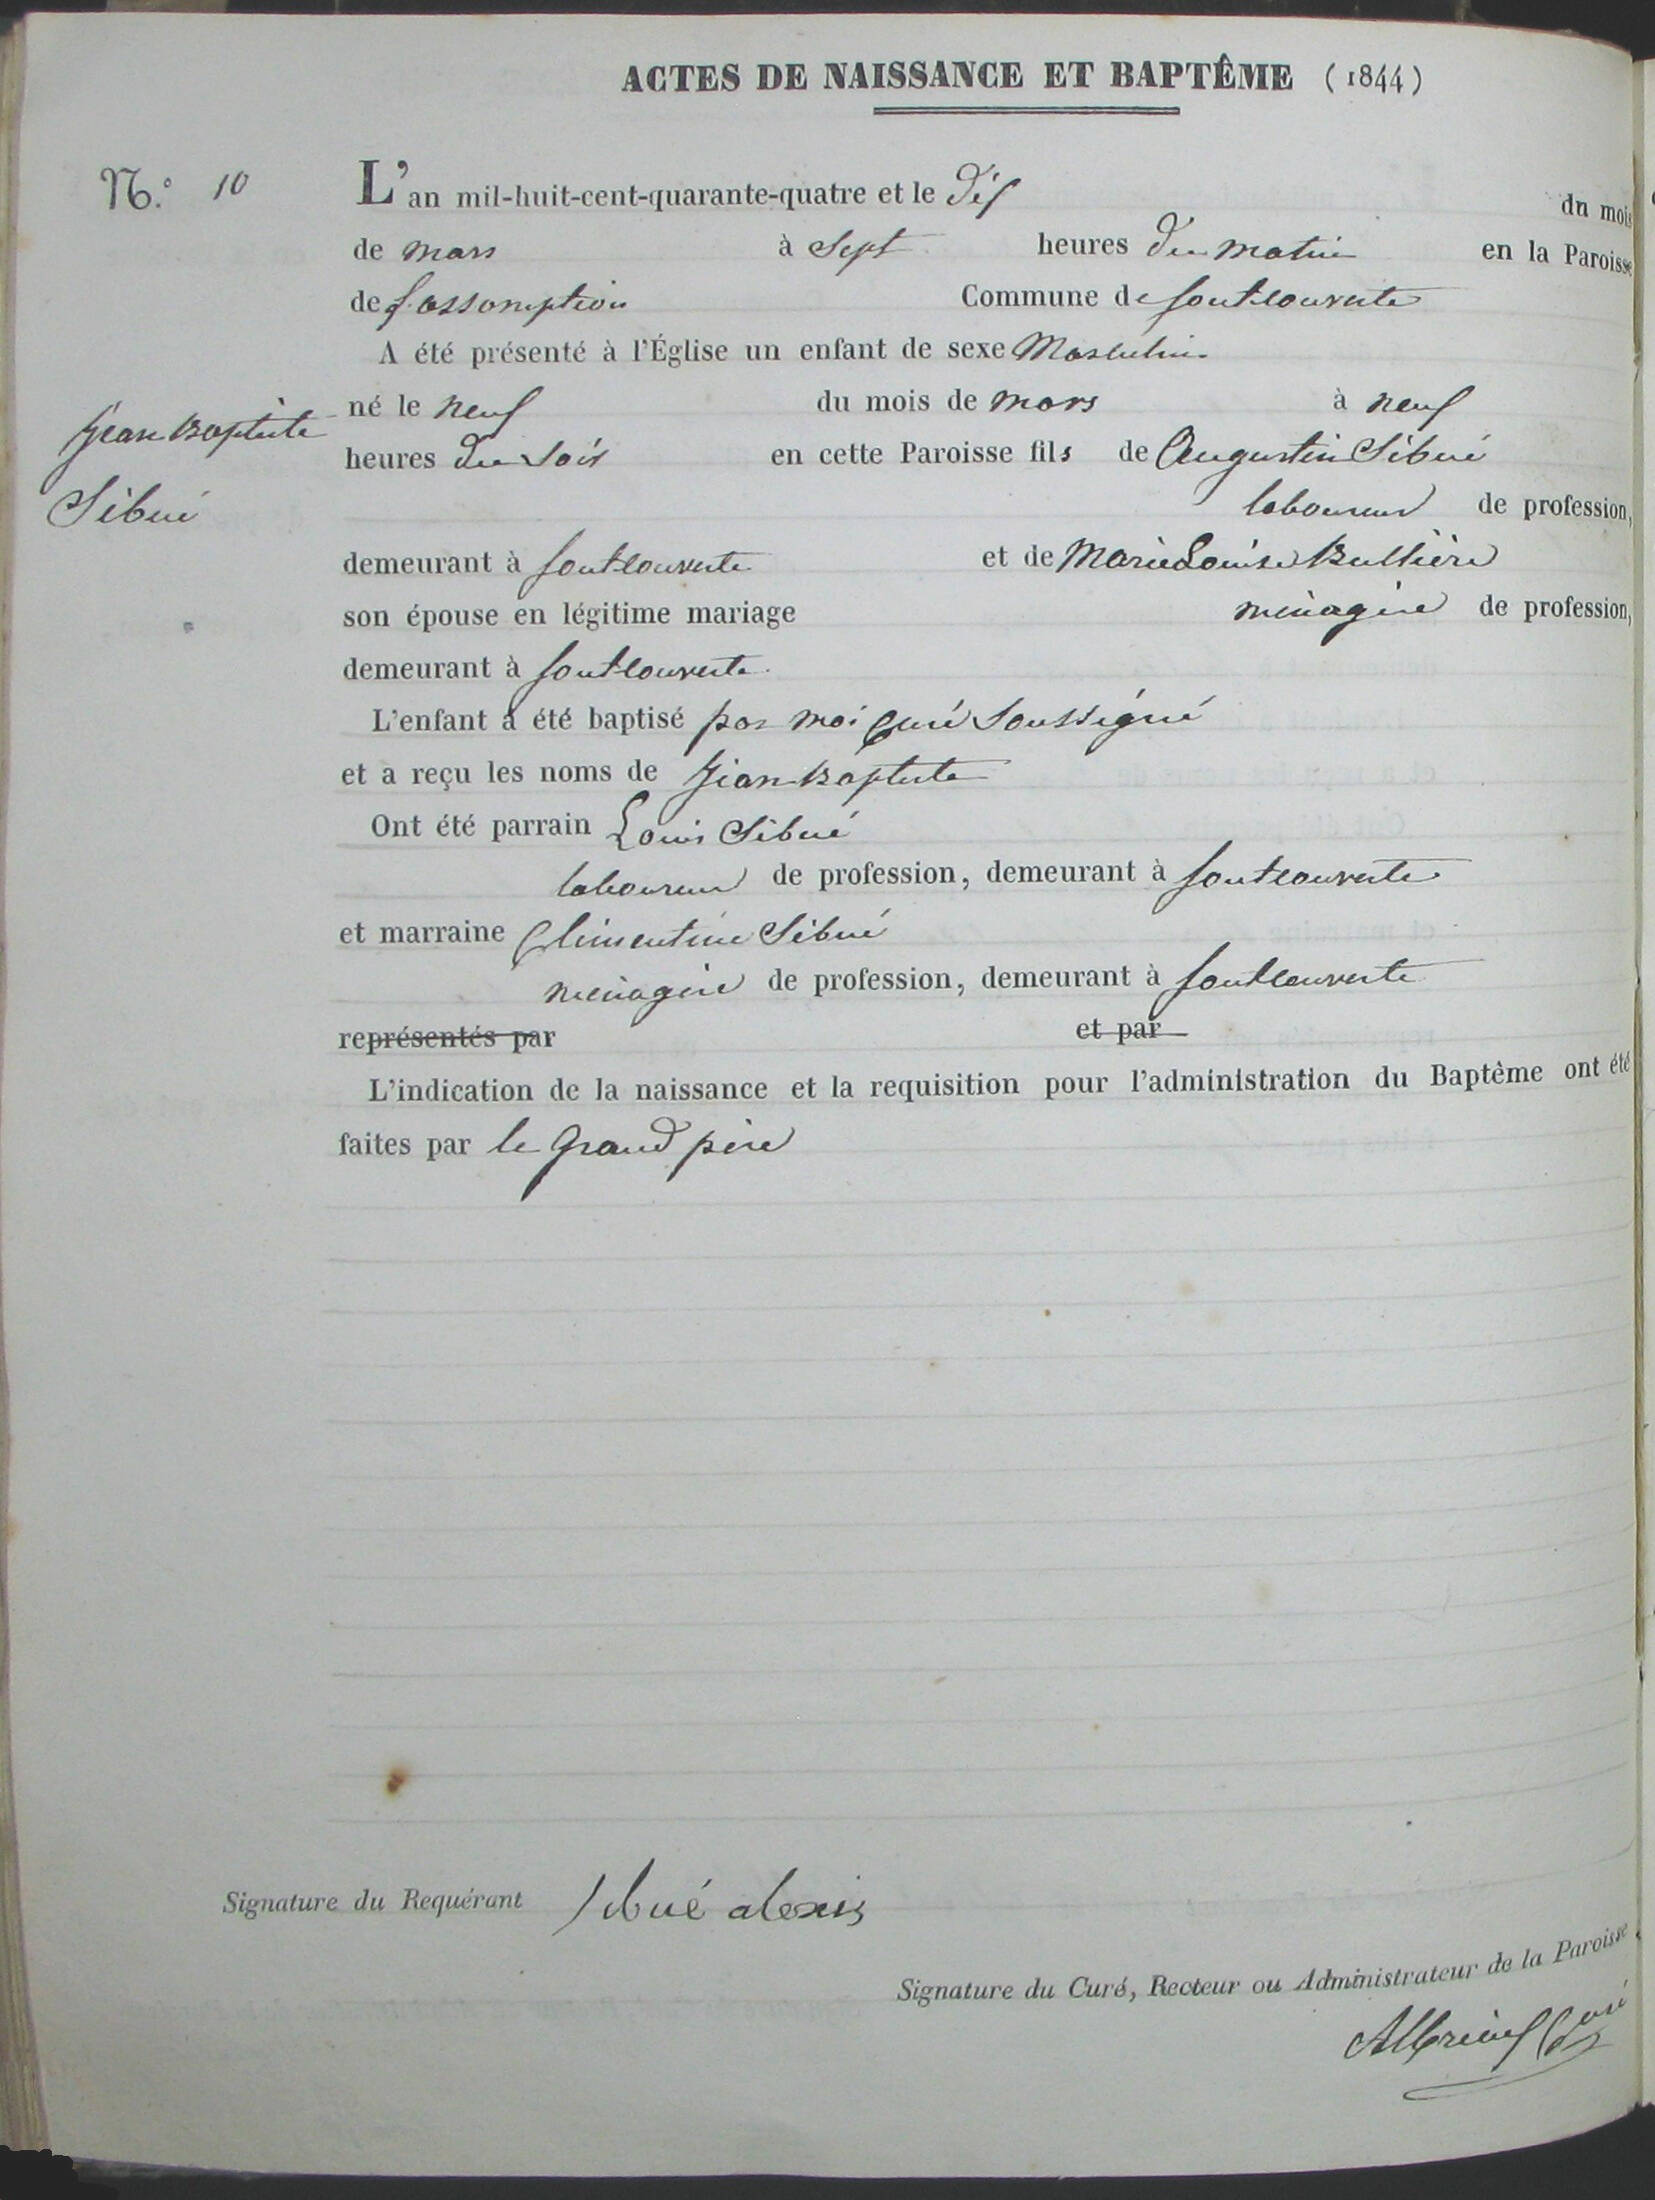 ACTES DE NAISSANCE ET BAPTÊME (1844)
N.° 10
L'an mil-huit-cent-quarante-quatre et le dix du mois
de mars à sept heures du matin en la Paroisse
de l'assomption Commune de fontcouverte
A été présenté à l'Église un enfant de sexe Masculin
né le neuf du mois de mars à neuf
Jean Baptiste
heures du soir en cette Paroisse fils de Augustin Sibué
Sibué
laboureur de profession,
demeurant à fontcouverte et de Marie Louise Bullière
son épouse en légitime mariage ménagère de profession,
demeurant à fontcouverte
L'enfant a été baptisé par moi Curé Soussigné
et a reçu les noms de Jean Baptiste
Ont été parrain Louis Sibué
laboureur de profession, demeurant à fontcouverte
et marraine Clémentine Sibué
ménagère de profession, demeurant à fontcouverte
représentés par et par
L'indication de la naissance et la requisition pour l'administration du Baptême ont été
faites par le Grand père
Signature du Requérant Sibué alexis
Signature du Curé, Recteur ou Administrateur de la Paroisse,
Curé